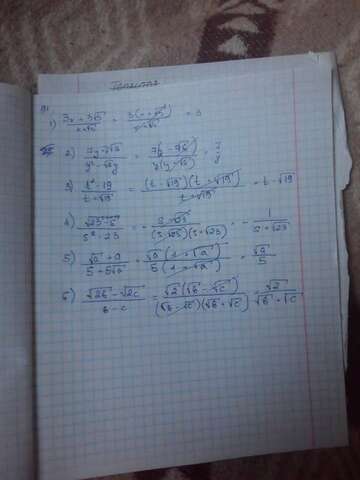 №1
1) (3x + 3√5)/(x+√5) = 3(x+√5)/(x+√5) = 3
2) (7y-7√3)/(y²-√3y) = 7(y-√3)/(y(y-√3)) = 7/y
3) (t²-19)/(t+√19) = (t-√19)(t+√19)/(t+√19) = t-√19
4) (√23-s)/(s²-23) = - (s-√23)/((s-√23)(s+√23)) = - 1/(s+√23)
5) (√a+a)/(5+5√a) = √a(1+√a)/(5(1+√a)) = √a/5
6) (√2b-√2c)/(b-c) = √2(√b-√c)/((√b-√c)(√b+√c)) = √2/(√b+√c)